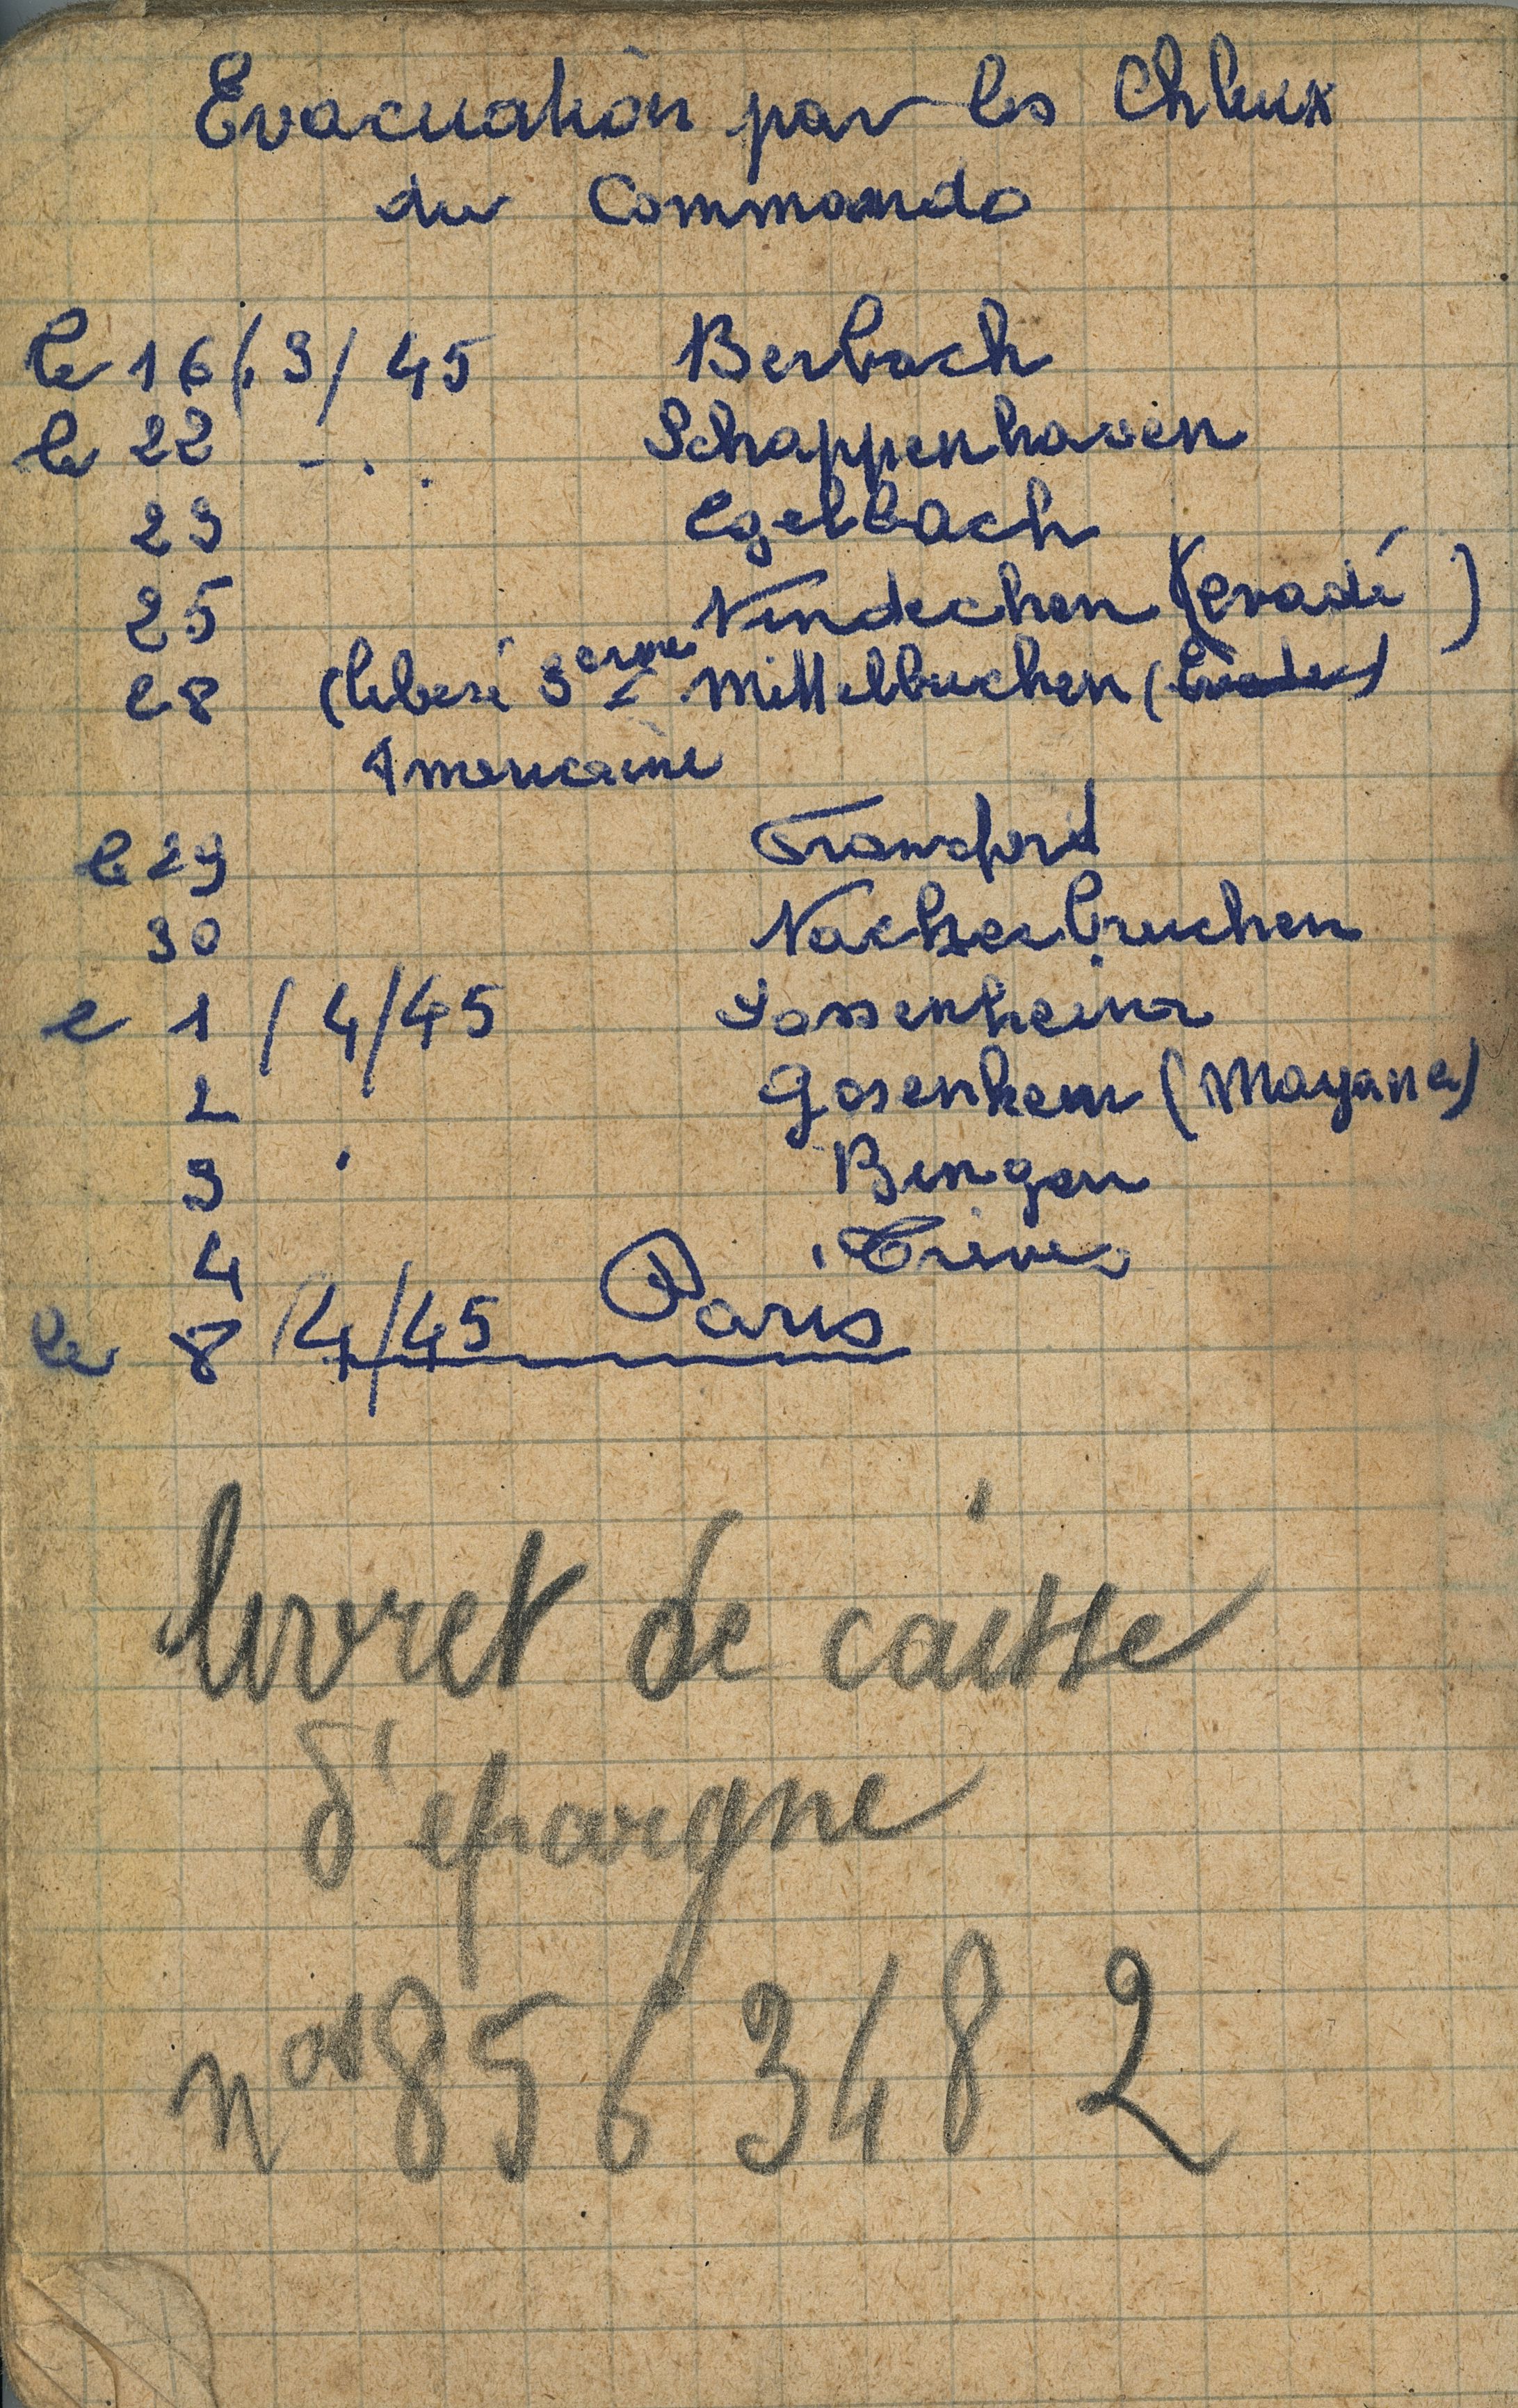 Evacuation par les Chleux
du Commando
le 16/3/45 Berbach
le 22 -. . Schappenhaven
23 Egelbach
25 Vindechen (evadé)
28 (liberé 3eme Mittelbuchen (Evadé)
Americaine
le 29 Francford
30 Nachserbruchen
le 1/4/45 Sossenheim
2 Gosenheim (Mayence)
3 Bingen
4 Treves
le 8/4/45 Paris
livret de caisse
d'epargne
n° 856 348 2